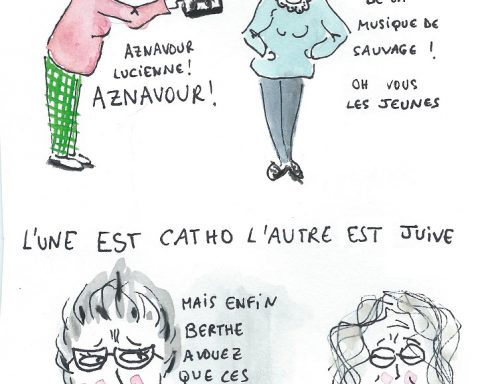 DE LA
MUSIQUE DE
SAUVAGE !
OH VOUS
LES JEUNES
AZNAVOUR
LUCIENNE!
AZNAVOUR!
L'UNE EST CATHO L'AUTRE EST JUIVE
MAIS ENFIN
BERTHE
AVOUEZ
QUE CES